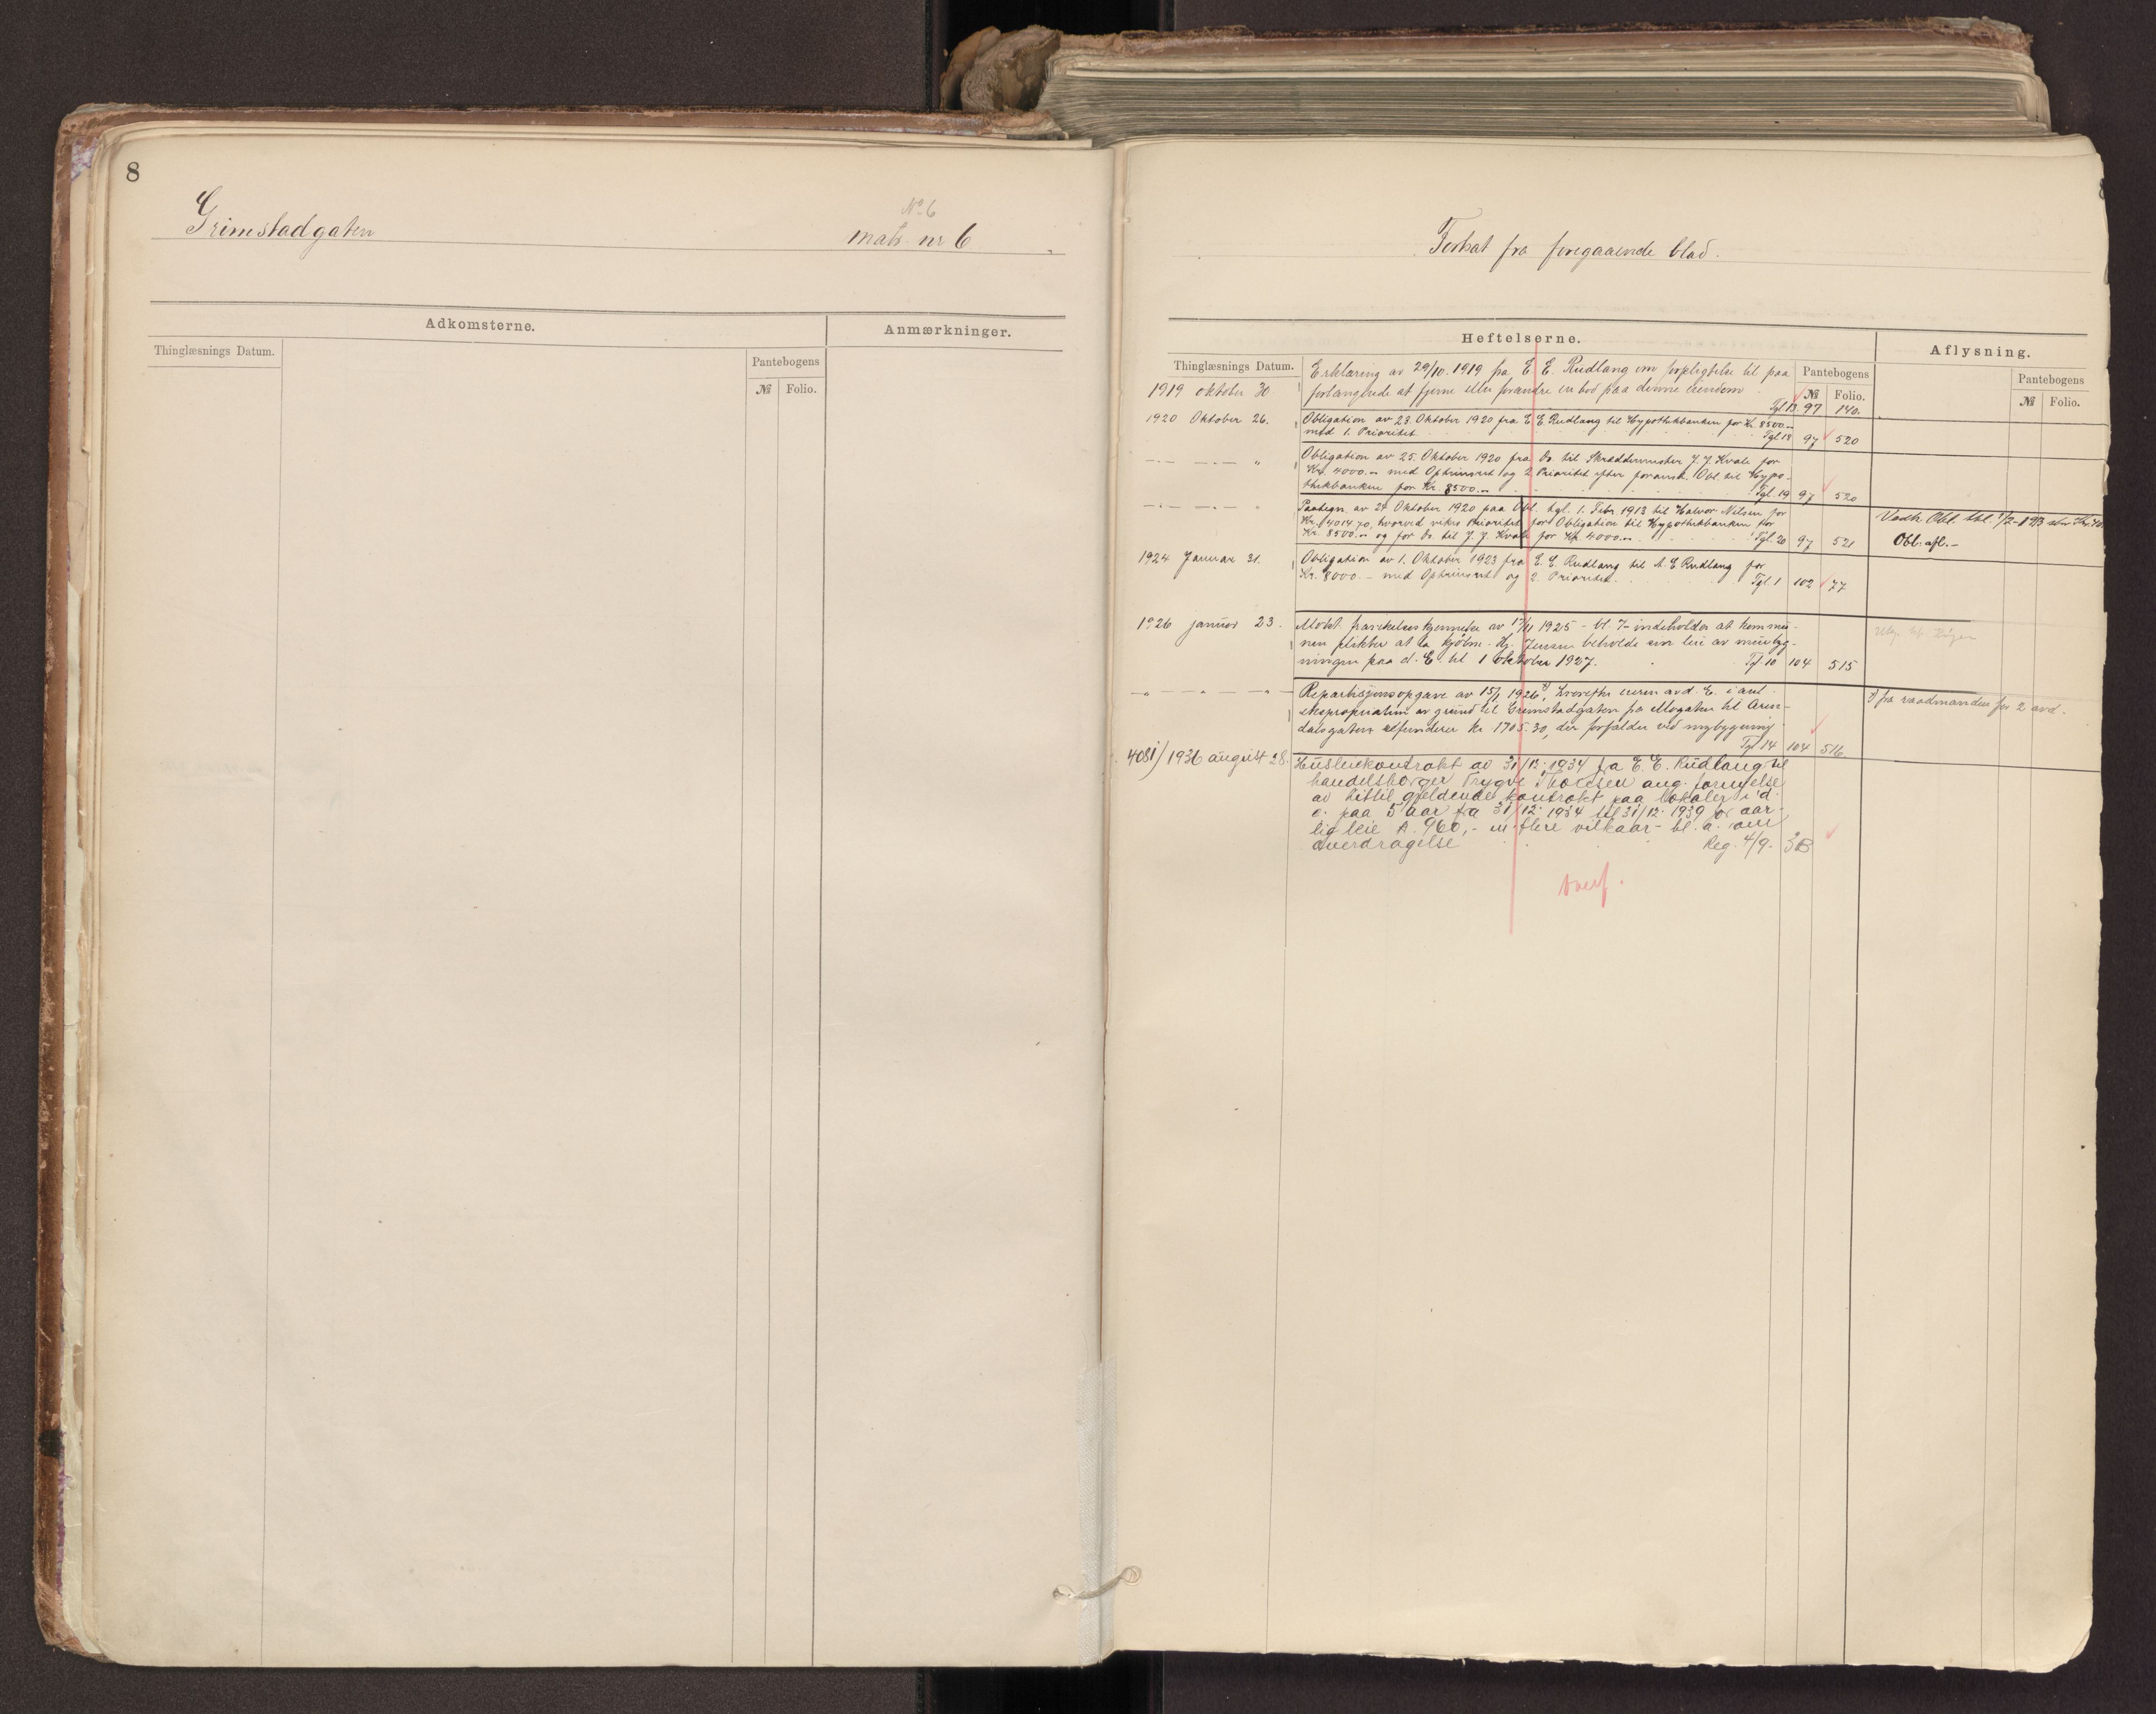 8
Grimstadgaten
No 6
matr. nr 6
Adkomsterne.
Anmærkninger.
Thinglæsnings Datum.
Pantebogens
№ Folio.
Fortsat fra foregaaende blad.
Heftelserne.
Aflysning.
Thinglæsnings Datum.
Pantebogens
№ Folio.
Pantebogens
№ Folio.
1919 oktober 30. Erklæring av 29/10. 1919 fra E. E. Rudlang om forpligtelse til paa
forlangende at fjerne eller forandre en bod paa denne eiendom.
Tgl 13 97 140.
1920 Oktober 26. Obligation av 23. Oktober 1920 fra E. E. Rudlang til Hypothekbanken for Kr. 8500.-
med 1. Prioritet. Tgl 18 97 520
—.— —.— " Obligation av 25. Oktober 1920 fra Do. til Skræddermester J. J. Kvale for
Kr. 4000.- med Optrinsret og 2. Prioritet efter foranst. Obl. til Hypo-
thekbanken for Kr. 8500.- Tgl. 19 97 520
—.— —.— " Paategn. av 24 Oktober 1920 paa Obl. tgl. 1. Febr. 1913 til Halvor Nilsen for
Kr. 4014.70, hvorved vikes Prioritet for Obligation til Hypothekbanken for
Kr. 8500.- og for Do. til J. J. Kvale for Kr. 4000.- Tgl. 20 97 521
Vedk. Obl. tgl. 1/2-1913
Obl. afl.-
1924 Januar 31. Obligation av 1. Oktober 1923 fra E. E. Rudlang til A. E. Rudlang for
Kr. 8000.- med Optrinsret og 2. Prioritet. Tgl. 1 102 77
1926 januar 23. 17/11 1925 - bl. - indeholder at kommu-
nen plikter at la kjøbm. Hj. Jensen beholde sin leie av murbyg-
ningen paa d. E. til 1 Oktober 1927. Tgl 10 104 515
—"— —"— —"— Repartisjonsopgave av 15/1 1926 x), hvorefter eieren av d. E. i anl.
ekspropriation av grund til Grimstadgaten fra Mogaten til Aren-
dalsgaten refunderer kr 1705.30, der forfalder ved nybygning
Tgl 14 104 516
x) fra raadmanden for 2 avd.
4081) 1936 august 28. Husleiekontrakt av 31/12. 1934 fra E. E. Rudlang til
handelsborger Trygve Thoresen ang. fornyelse
av hittil gjeldende kontrakt paa lokaler i d.
e. paa 5 aar fra 31/12. 1934 til 31/12. 1939 for aar-
lig leie kr. 960,- m. flere vilkaar - bl. a. om
overdragelse Reg. 4/9. 3B
Overf.